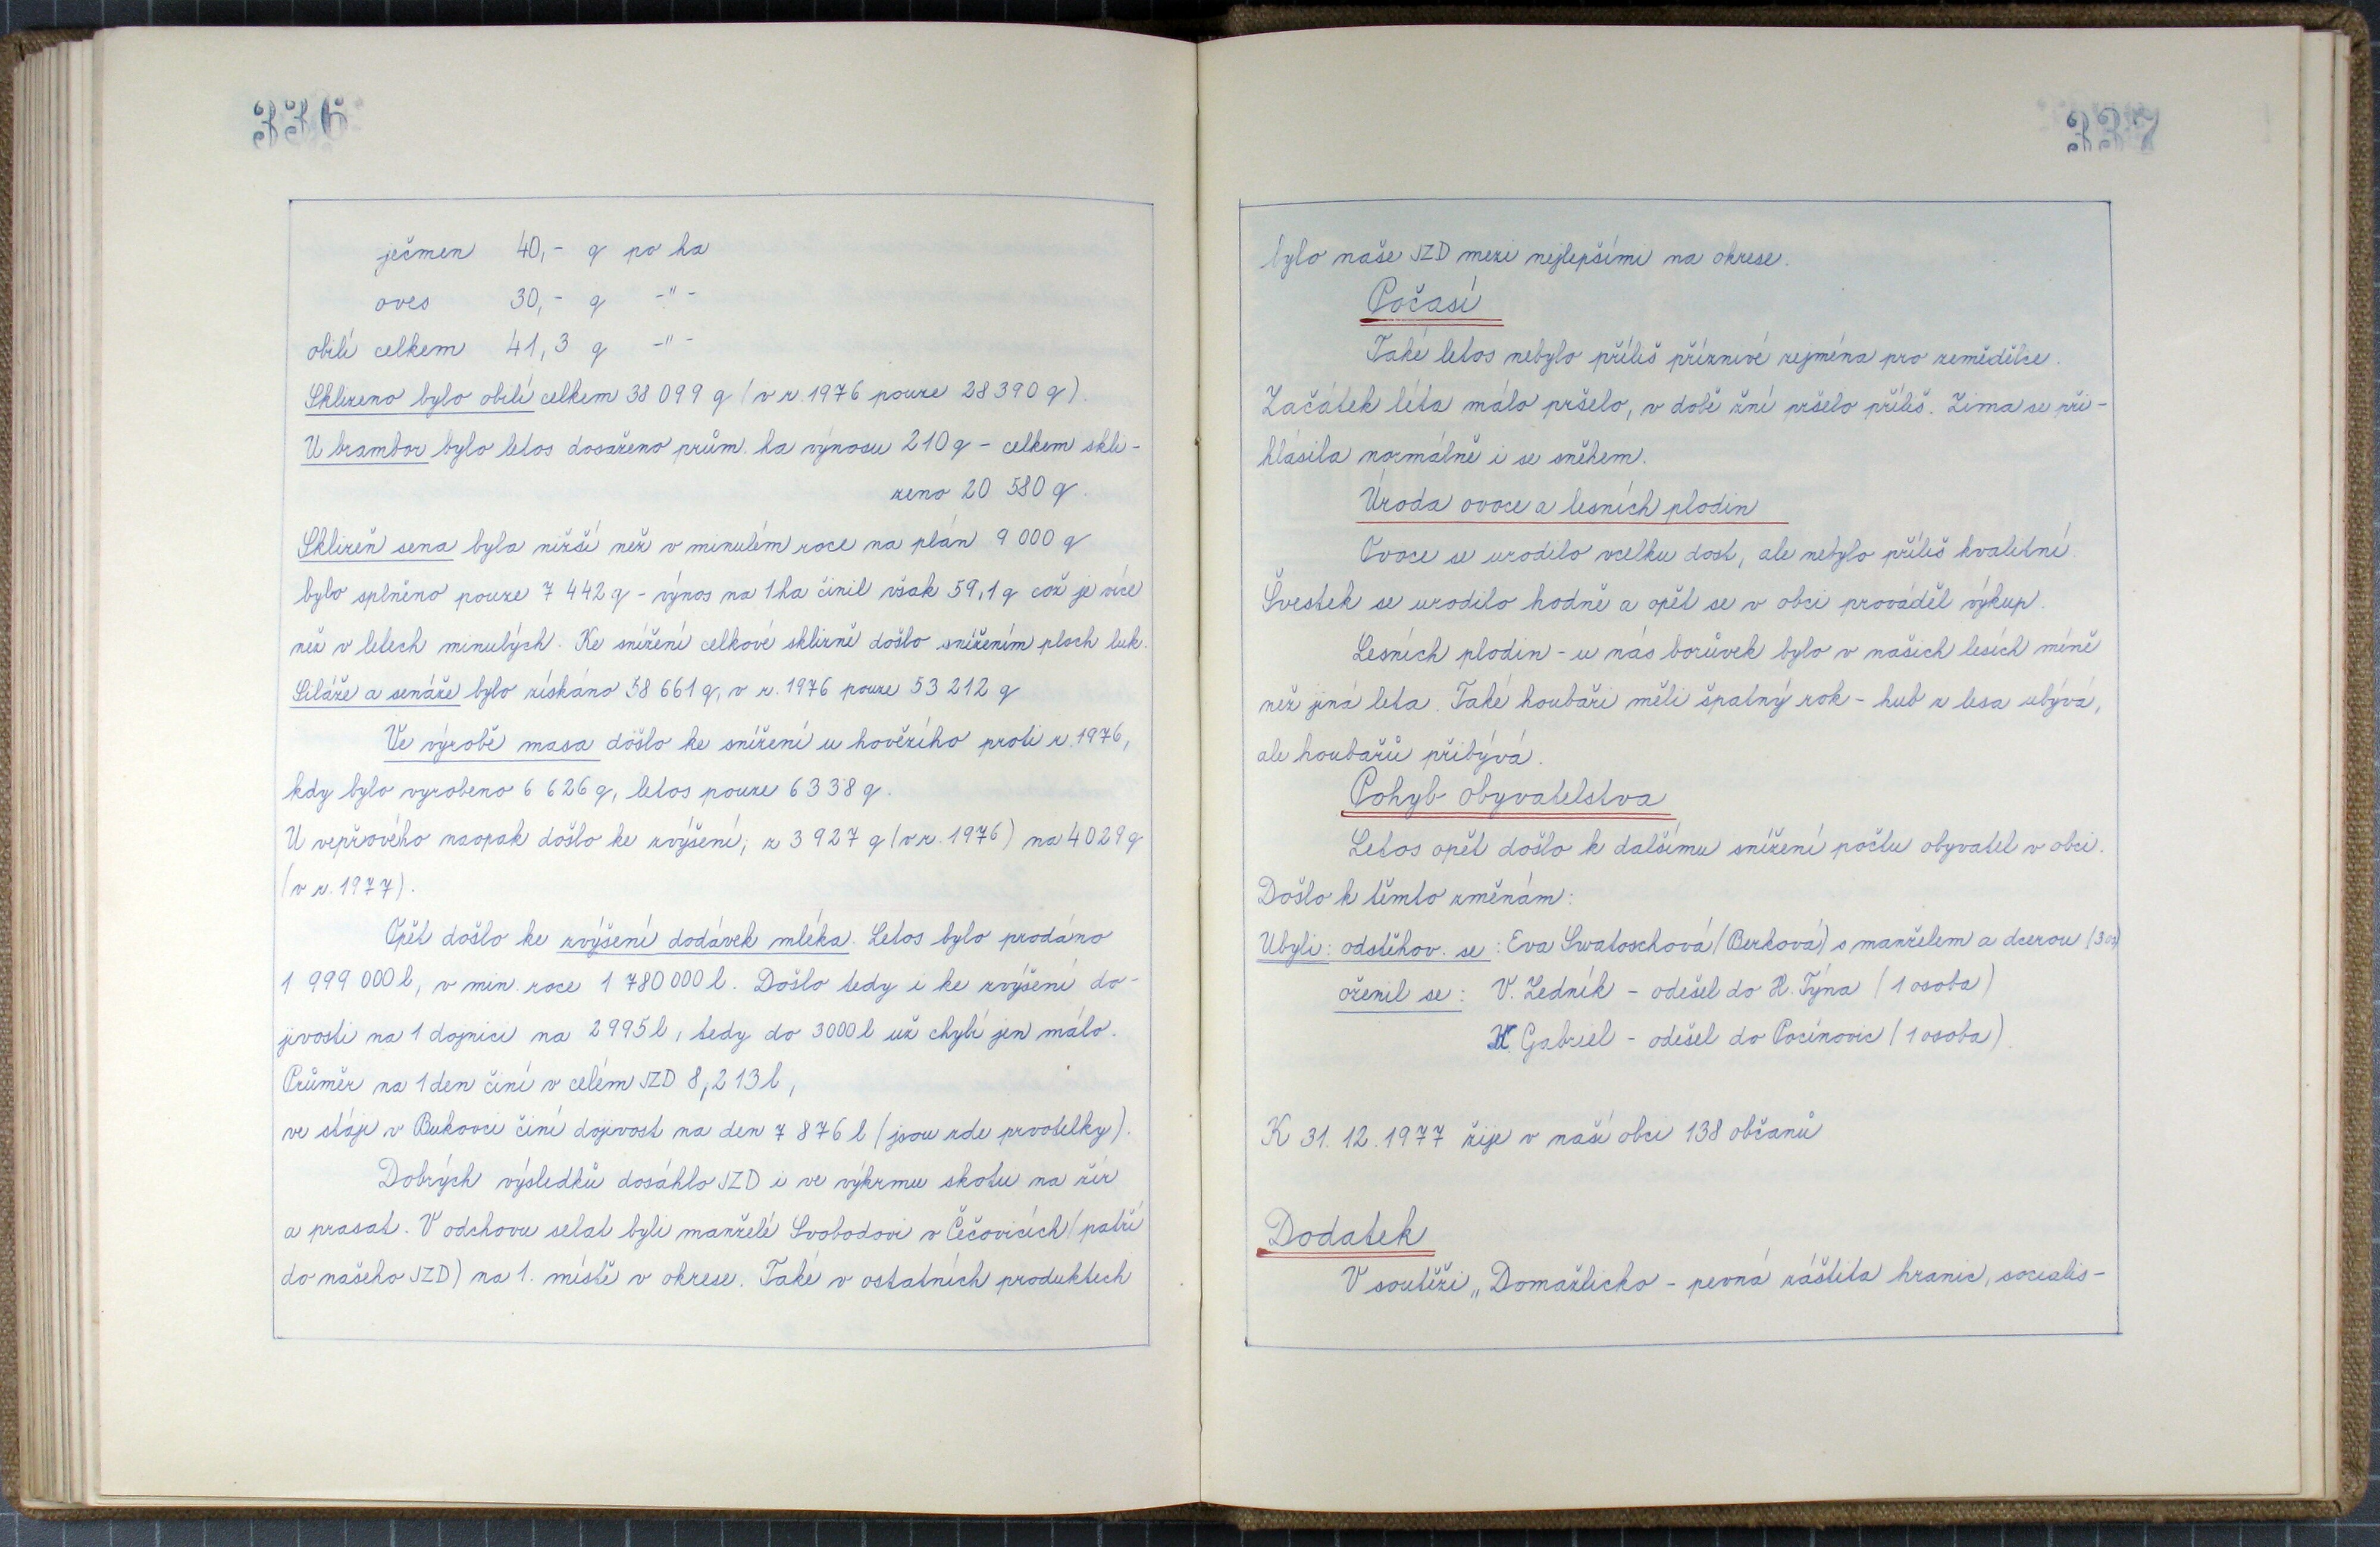 336
ječmen 40,- q po ha
oves 30,- q -"-
obilí celkem 41,3 q -"-
Sklizeno bylo obilí celkem 38 099 q (v r. 1976 pouze 28 390 q).
U brambor bylo letos dosaženo prům. ha výnosu 210 q - celkem skli-
zeno 20 580 q.
Sklizeň sena byla nižší než v minulém roce na plán 9 000 q
bylo splněno pouze 7 442 q - výnos na 1 ha činil však 59,1 q což je více
než v létech minulých. Ke snížení celkové sklizně došlo snížením ploch luk.
Siláže a senáže bylo získáno 58 661 q, v r. 1976 pouze 53 212 q
Ve výrobě masa došlo ke snížení u hovězího proti r. 1976,
kdy bylo vyrobeno 6 626 q, letos pouze 6 338 q.
U vepřového naopak došlo ke zvýšení, z 3 927 q (v r. 1976) na 4 029 q
(v r. 1977).
Opět došlo ke zvýšení dodávek mléka. Letos bylo prodáno
1 999 000 l, v min. roce 1 780 000 l. Došlo tedy i ke zvýšení do-
jivosti na 1 dojnici na 2995 l, tedy do 3000 l už chybí jen málo.
Průměr na 1 den činí v celém JZD 8,213 l,
ve stáji v Bukovci činí dojivost na den 7 876 l (jsou zde prvotelky).
Dobrých výsledků dosáhlo JZD i ve výkrmu skotu na žír
a prasat. V odchovu selat byli manželé Svobodovi v Čečovicích (patří
do našeho JZD) na 1. místě v okrese. Také v ostatních produktech
337
bylo naše JZD mezi nejlepšími na okrese.
Počasí
Také letos nebylo příliš příznivé zejména pro zemědělce.
Začátek léta málo pršelo, v době žní pršelo příliš. Zima se při-
hlásila normálně i se sněhem.
Úroda ovoce a lesních plodin
Ovoce se urodilo vcelku dost, ale nebylo příliš kvalitní.
Švestek se urodilo hodně a opět se v obci prováděl výkup.
Lesních plodin - u nás borůvek bylo v našich lesích méně
než jiná leta. Také houbaři měli špatný rok - hub z lesa ubývá,
ale houbařů přibývá.
Pohyb obyvatelstva
Letos opět došlo k dalšímu snížení počtu obyvatel v obci.
Došlo k těmto změnám:
Ubyli: odstěhov. se: Eva Swatoschová (Berková) s manželem a dcerou (3 os)
oženil se: V. Ledník - odešel do H. Týna (1 osoba)
Gabriel - odešel do Pocinovic (1 osoba).
K 31. 12. 1977 žije v naší obci 138 občanů
Dodatek
V soutěži „Domažlicko - pevná záštita hranic, socialis-